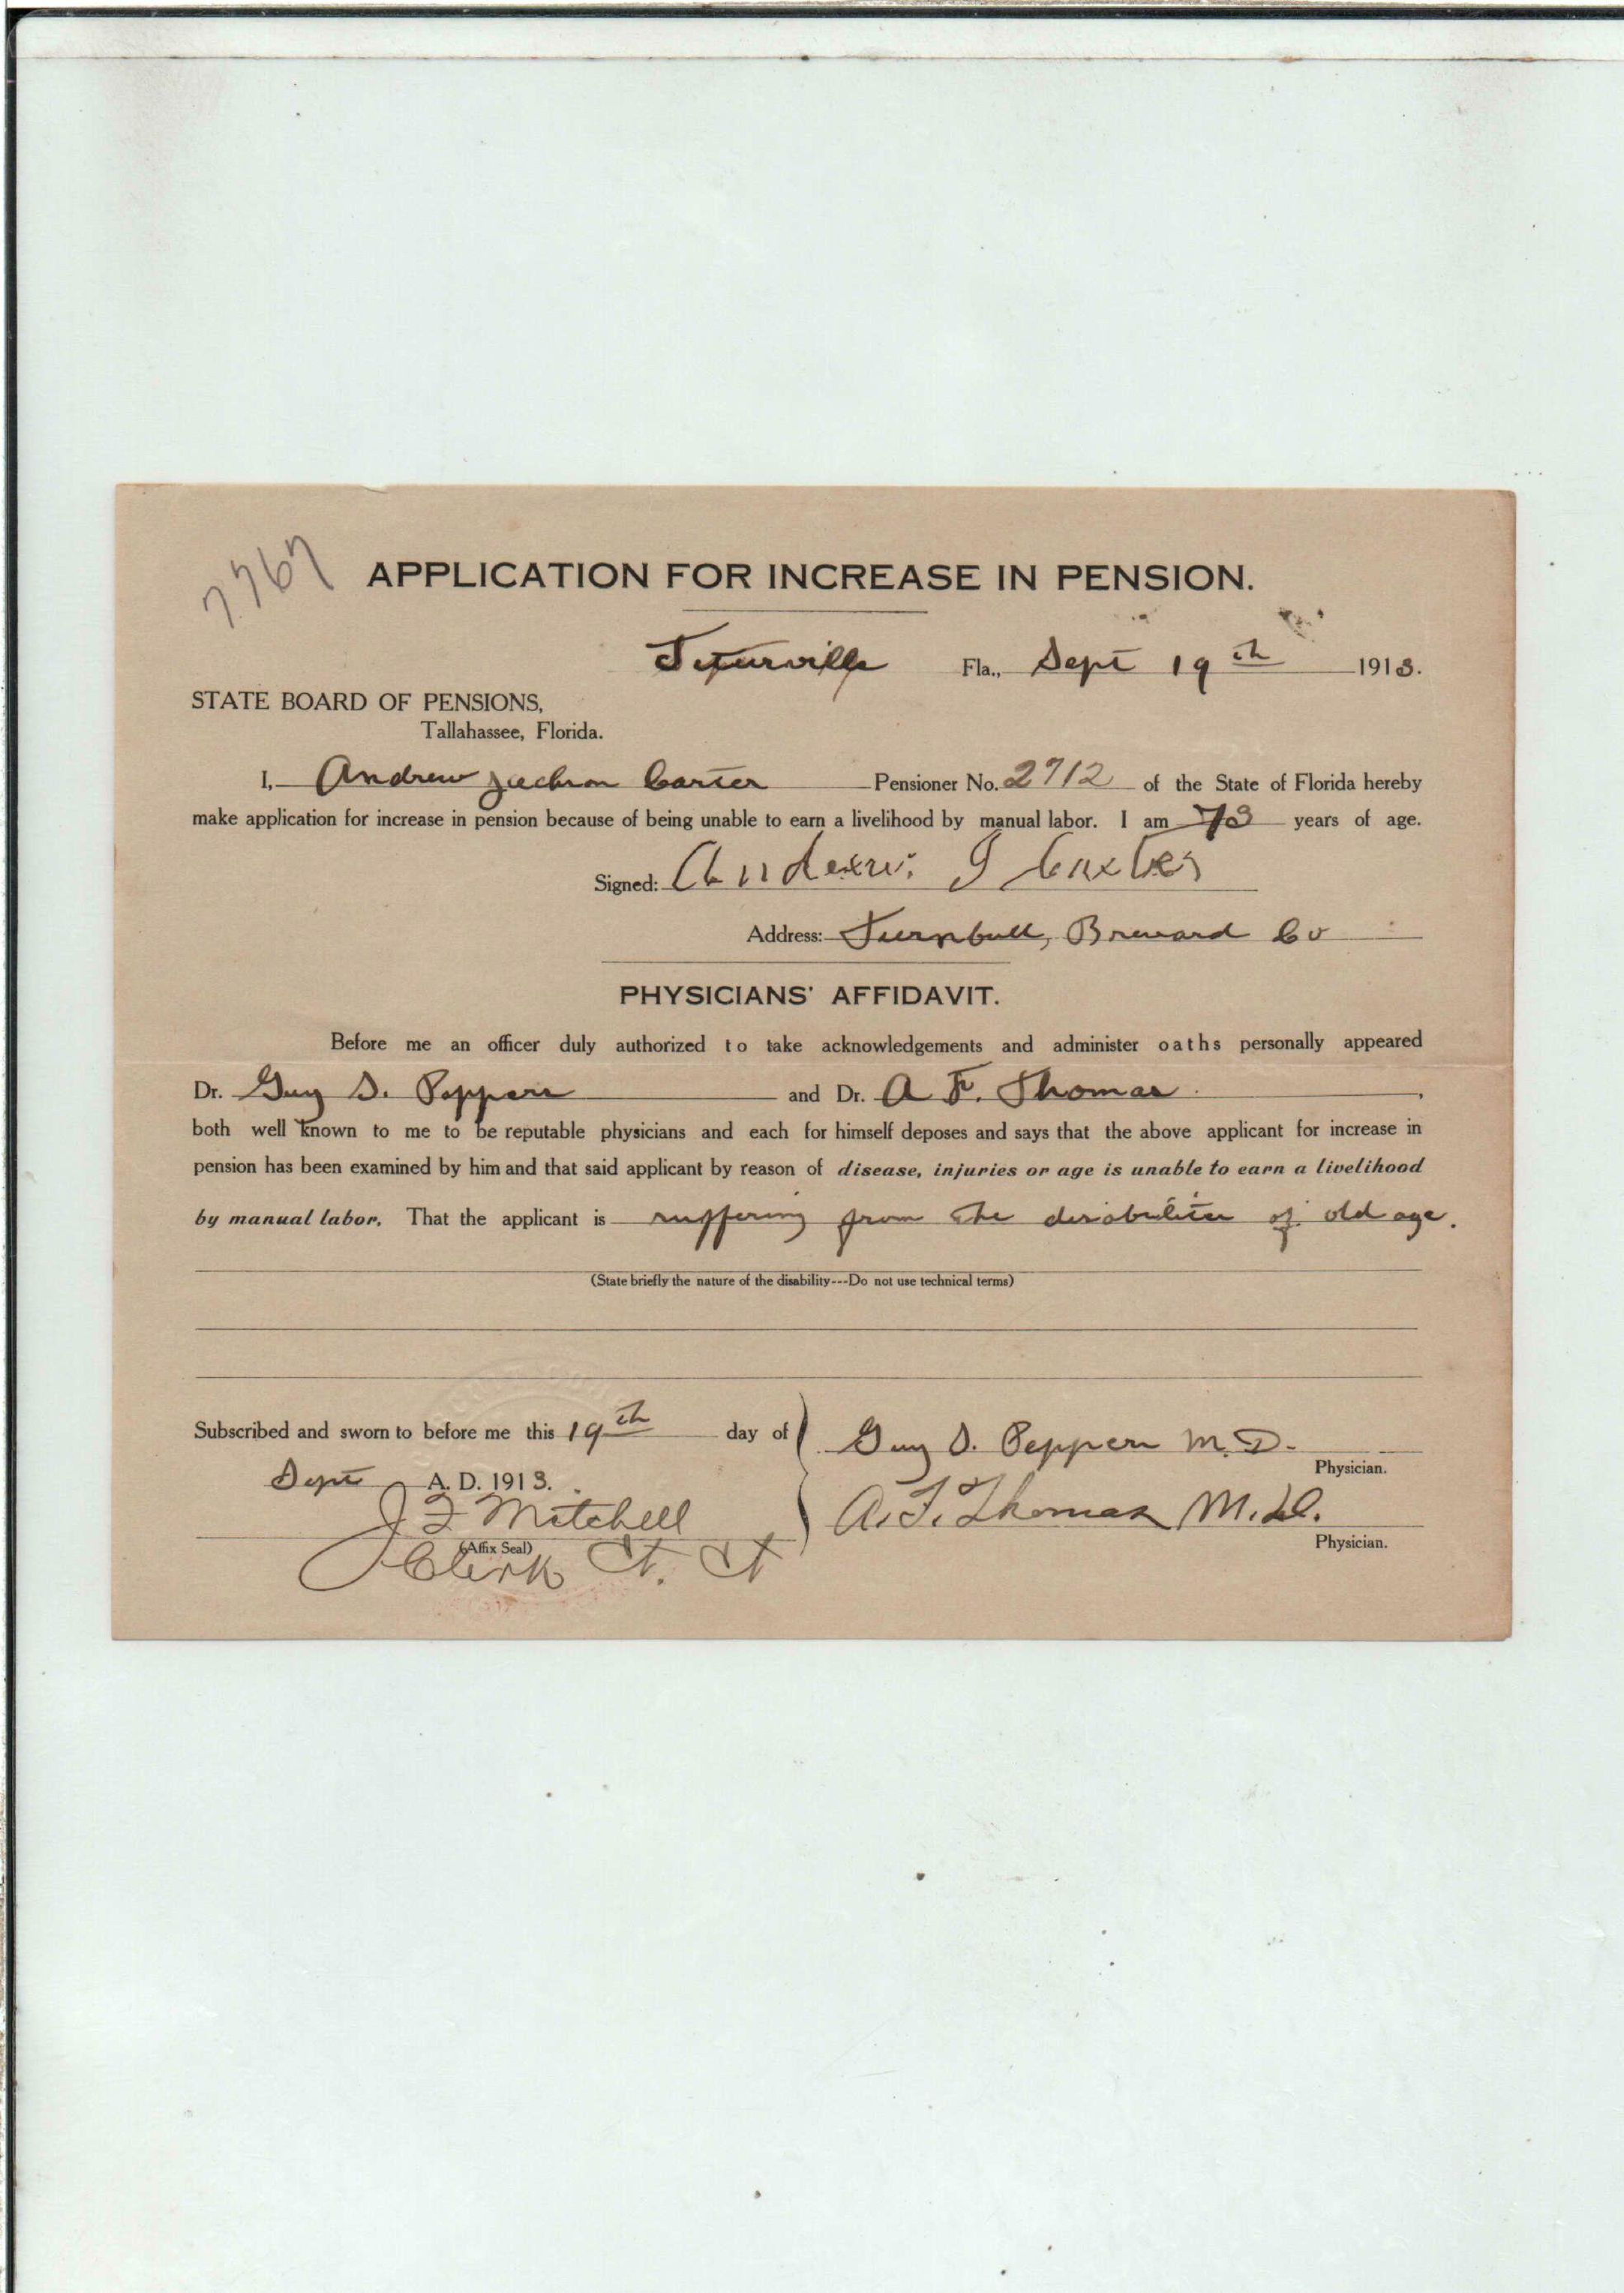 7767
APPLICATION FOR INCREASE IN PENSION.
Titusville Fla., Sept 19th 1913.
STATE BOARD OF PENSIONS,
Tallahassee, Florida.
I, Andrew Jackson Carter Pensioner No. 2712 of the State of Florida hereby
make application for increase in pension because of being unable to earn a livelihood by manual labor. I am 73 years of age.
Signed: Andrew J Carter
Address: Turnbull, Brevard Co
PHYSICIANS' AFFIDAVIT.
Before me an officer duly authorized to take acknowledgements and administer oaths personally appeared
Dr. Guy D. Peppers and Dr. A F. Thomas,
both well known to me to be reputable physicians and each for himself deposes and says that the above applicant for increase in
pension has been examined by him and that said applicant by reason of disease, injuries or age is unable to earn a livelihood
by manual labor. That the applicant is suffering from the disabilities of old age.
(State briefly the nature of the disability---Do not use technical terms)
Subscribed and sworn to before me this 19th day of
Guy D. Peppers M.D.
Physician.
Sept A. D. 1913.
J F Mitchell
A. F. Thomas M.D.
(Affix Seal)
Physician.
Clerk Ct. Ct